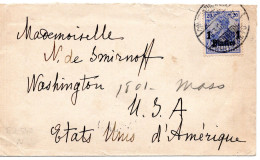 Mademoiselle
N. de Smirnoff
Washington 1801. Mass
U. S. A
Etats Unis d'Amérique